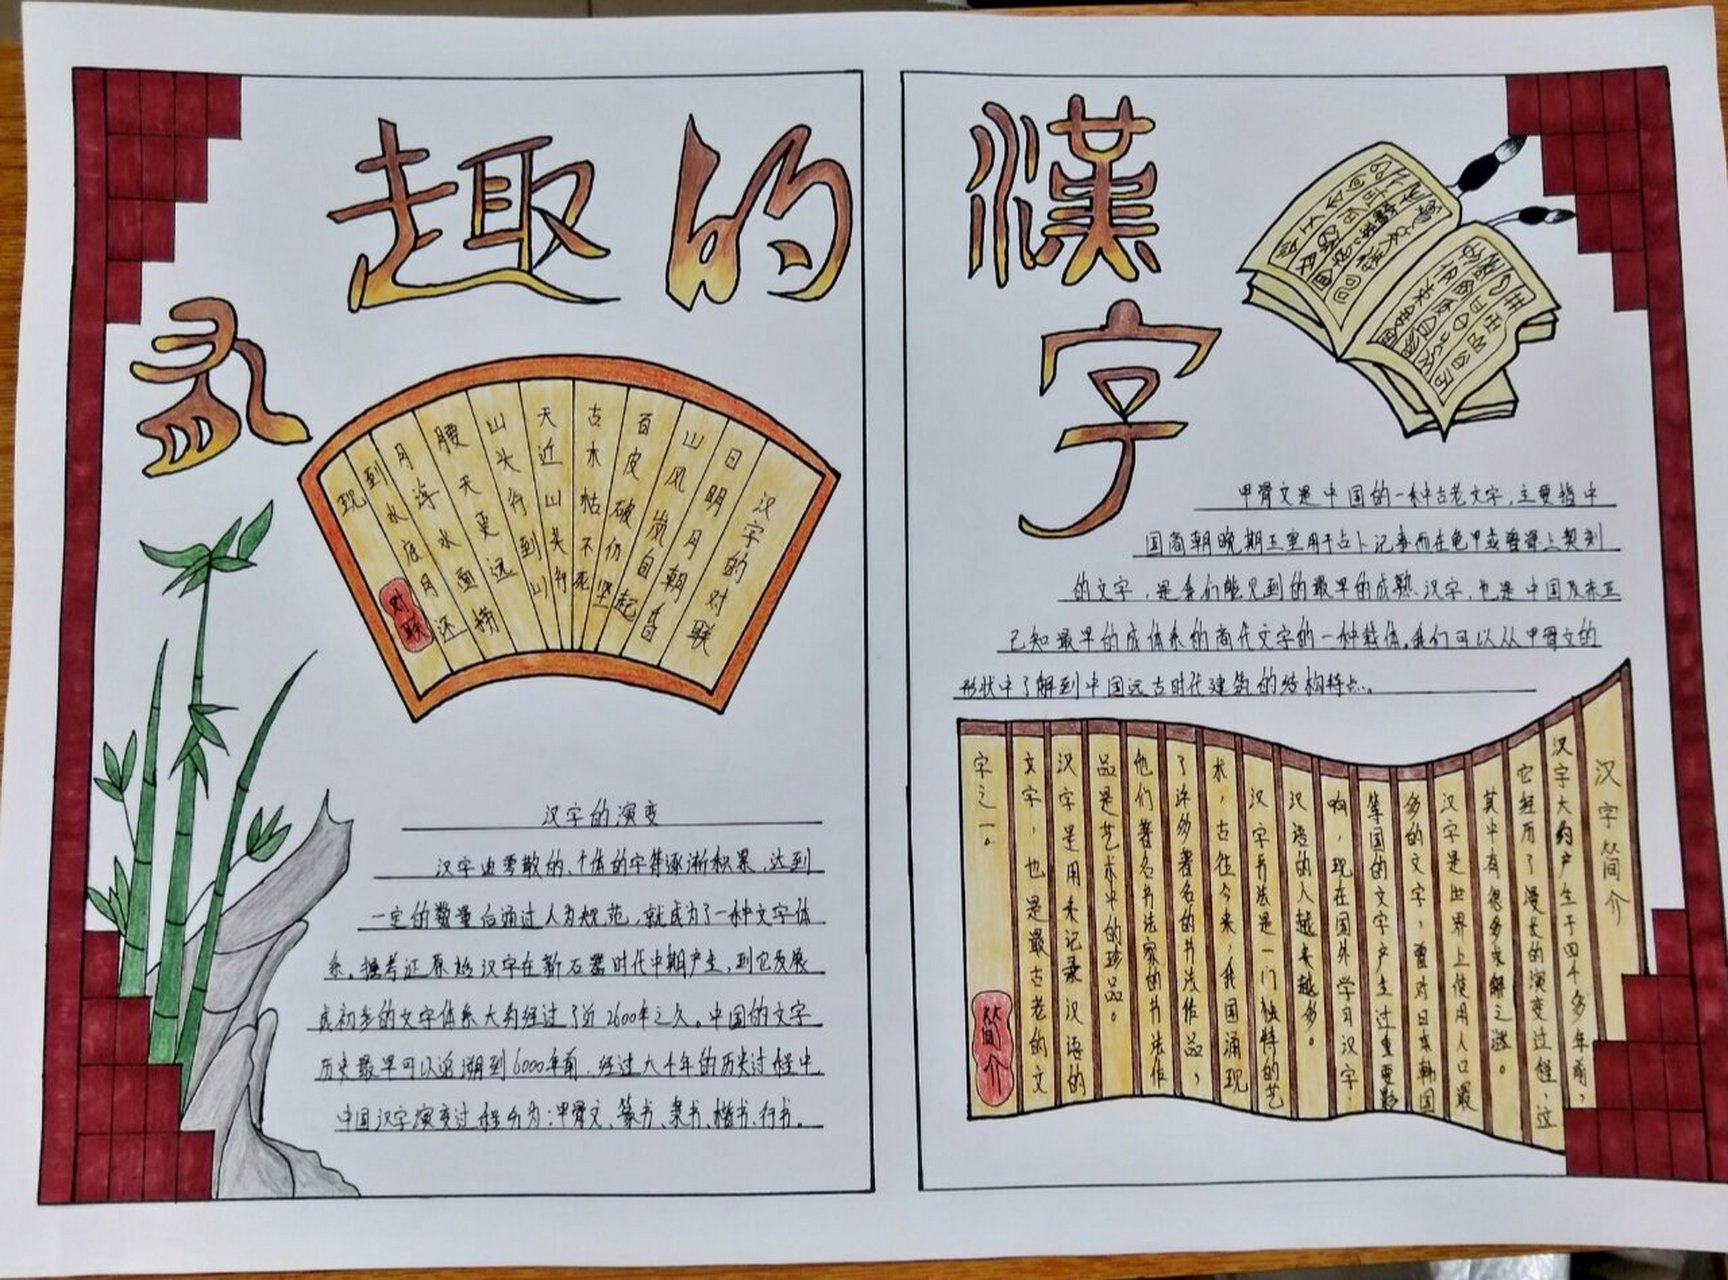 有趣的
漢字
汉字的对联
日明月朝昏
山风岚自起
百皮破仍坚
古木枯不死
天近山头行
山头行到山
腰天更远
月浮水面捞
到水底月还
现
对联
汉字的演变
汉字由零散的、个体的字符逐渐积累,达到
一定的数量后通过人为规范,就成为了一种文字体
系。据考证原始汉字在新石器时代中期产生,到它发展
成初步的文字体系大约经过了近2600年之久。中国的文字
历史最早可以追溯到6000年前,经过六千年的历史过程中
中国汉字演变过程分为:甲骨文、篆书、隶书、楷书、行书。
甲骨文是中国的一种古老文字,主要指中
国商朝晚期王室用于占卜记事而在龟甲或兽骨上契刻
的文字,是我们能见到的最早的成熟汉字,也是中国及东亚
已知最早的成体系的商代文字的一种载体。我们可以从甲骨文的
形状中了解到中国远古时代建筑的结构特点。
汉字简介
汉字大约产生于四千多年前,
它经历了漫长的演变过程,这
其中有很多未解之谜。
汉字是世界上使用人口最
多的文字,曾对日本韩国
等国的文字产生过重要影
响,现在国外学习汉字、
汉语的人越来越多。
汉字书法是一门独特的艺
术,古往今来,我国涌现
了许多著名的书法作品,
他们著名书法家的书法作
品是艺术中的珍品。
汉字是用来记录汉语的
文字,也是最古老的文
字之一。
简介